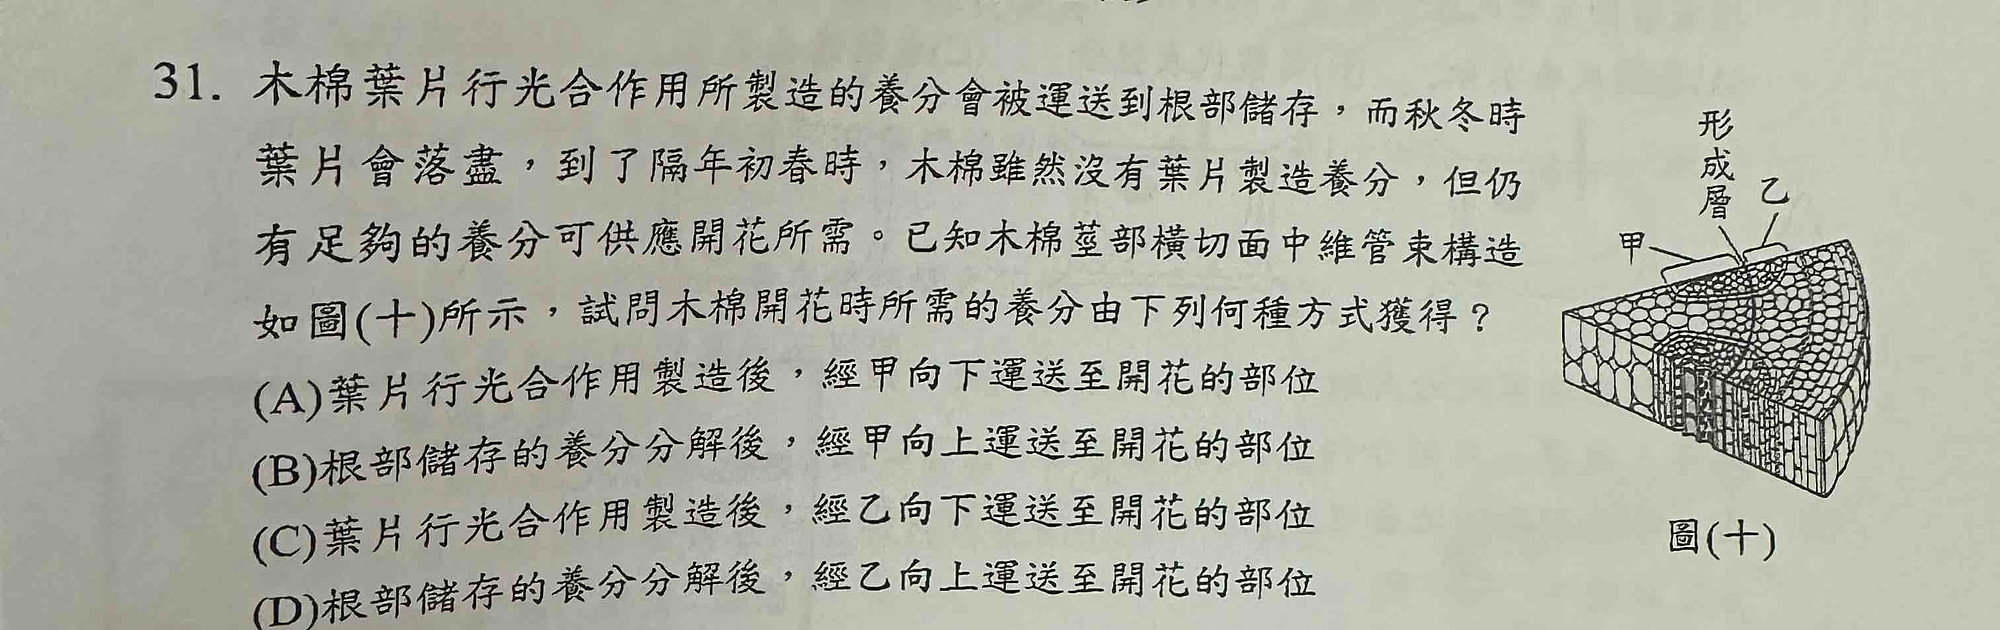 31. 木棉葉片行光合作用所製造的養分會被運送到根部儲存，而秋冬時
葉片會落盡，到了隔年初春時，木棉雖然沒有葉片製造養分，但仍
有足夠的養分可供應開花所需。已知木棉莖部橫切面中維管束構造
如圖(十)所示，試問木棉開花時所需的養分由下列何種方式獲得？
(A)葉片行光合作用製造後，經甲向下運送至開花的部位
(B)根部儲存的養分分解後，經甲向上運送至開花的部位
(C)葉片行光合作用製造後，經乙向下運送至開花的部位
(D)根部儲存的養分分解後，經乙向上運送至開花的部位
形成層
乙
甲
圖(十)